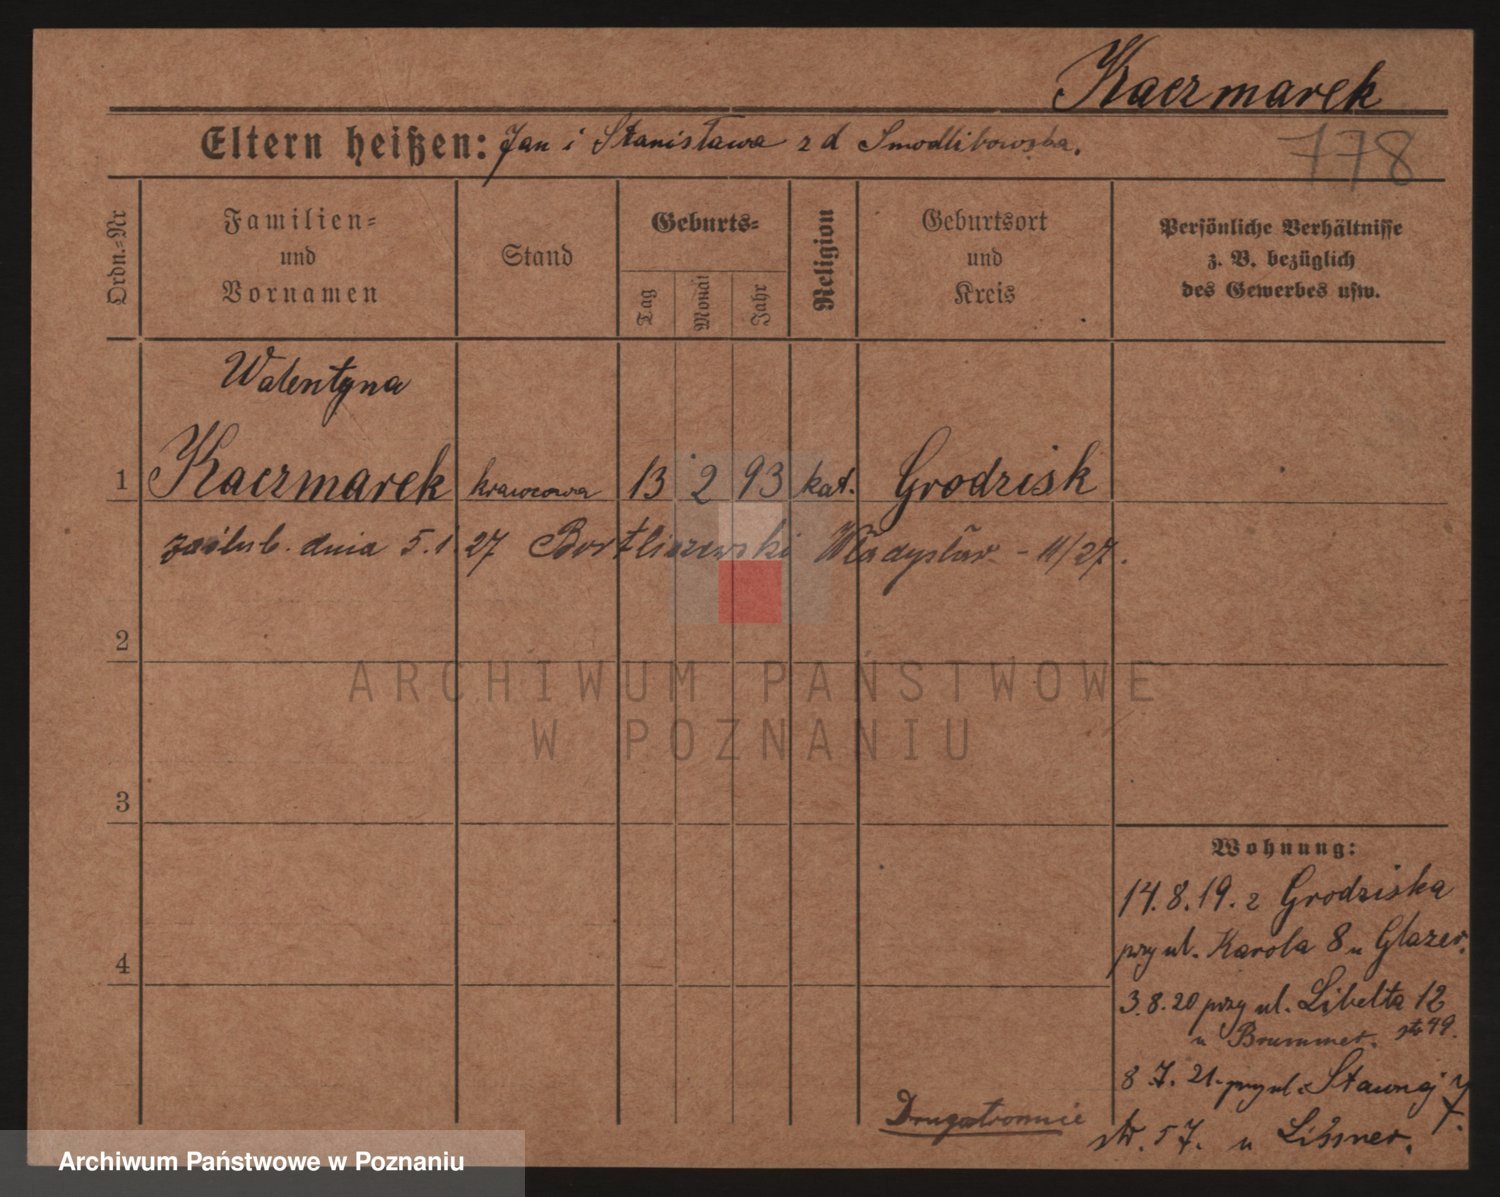 Kaczmarek
Eltern heißen: Jan i Stanisława z d Smodlibowska.
778
Ordn.=Nr
Familien=
und
Vornamen
Stand
Geburts=
Tag
Monat
Jahr
Religion
Geburtsort
und
Kreis
Persönliche Verhältnisse
z. B. bezüglich
des Gewerbes usw.
Walentyna
1 Kaczmarek krawcowa 13 2 93 kat. Grodzisk
zaślub. dnia 5.1.27 Bortliszewski Władysław - 11/27.
2
3
4
ARCHIWUM PAŃSTWOWE
W POZNANIU
Wohnung:
14.8.19. z Grodziska
przy ul. Karola 8 u Glazer.
3.8.20 przy ul. Libelta 12
u Brummer. str 49.
8.7.21. przy ul. Stawnej 7
str. 57. u Lissner.
Drugostronnie
Archiwum Państwowe w Poznaniu